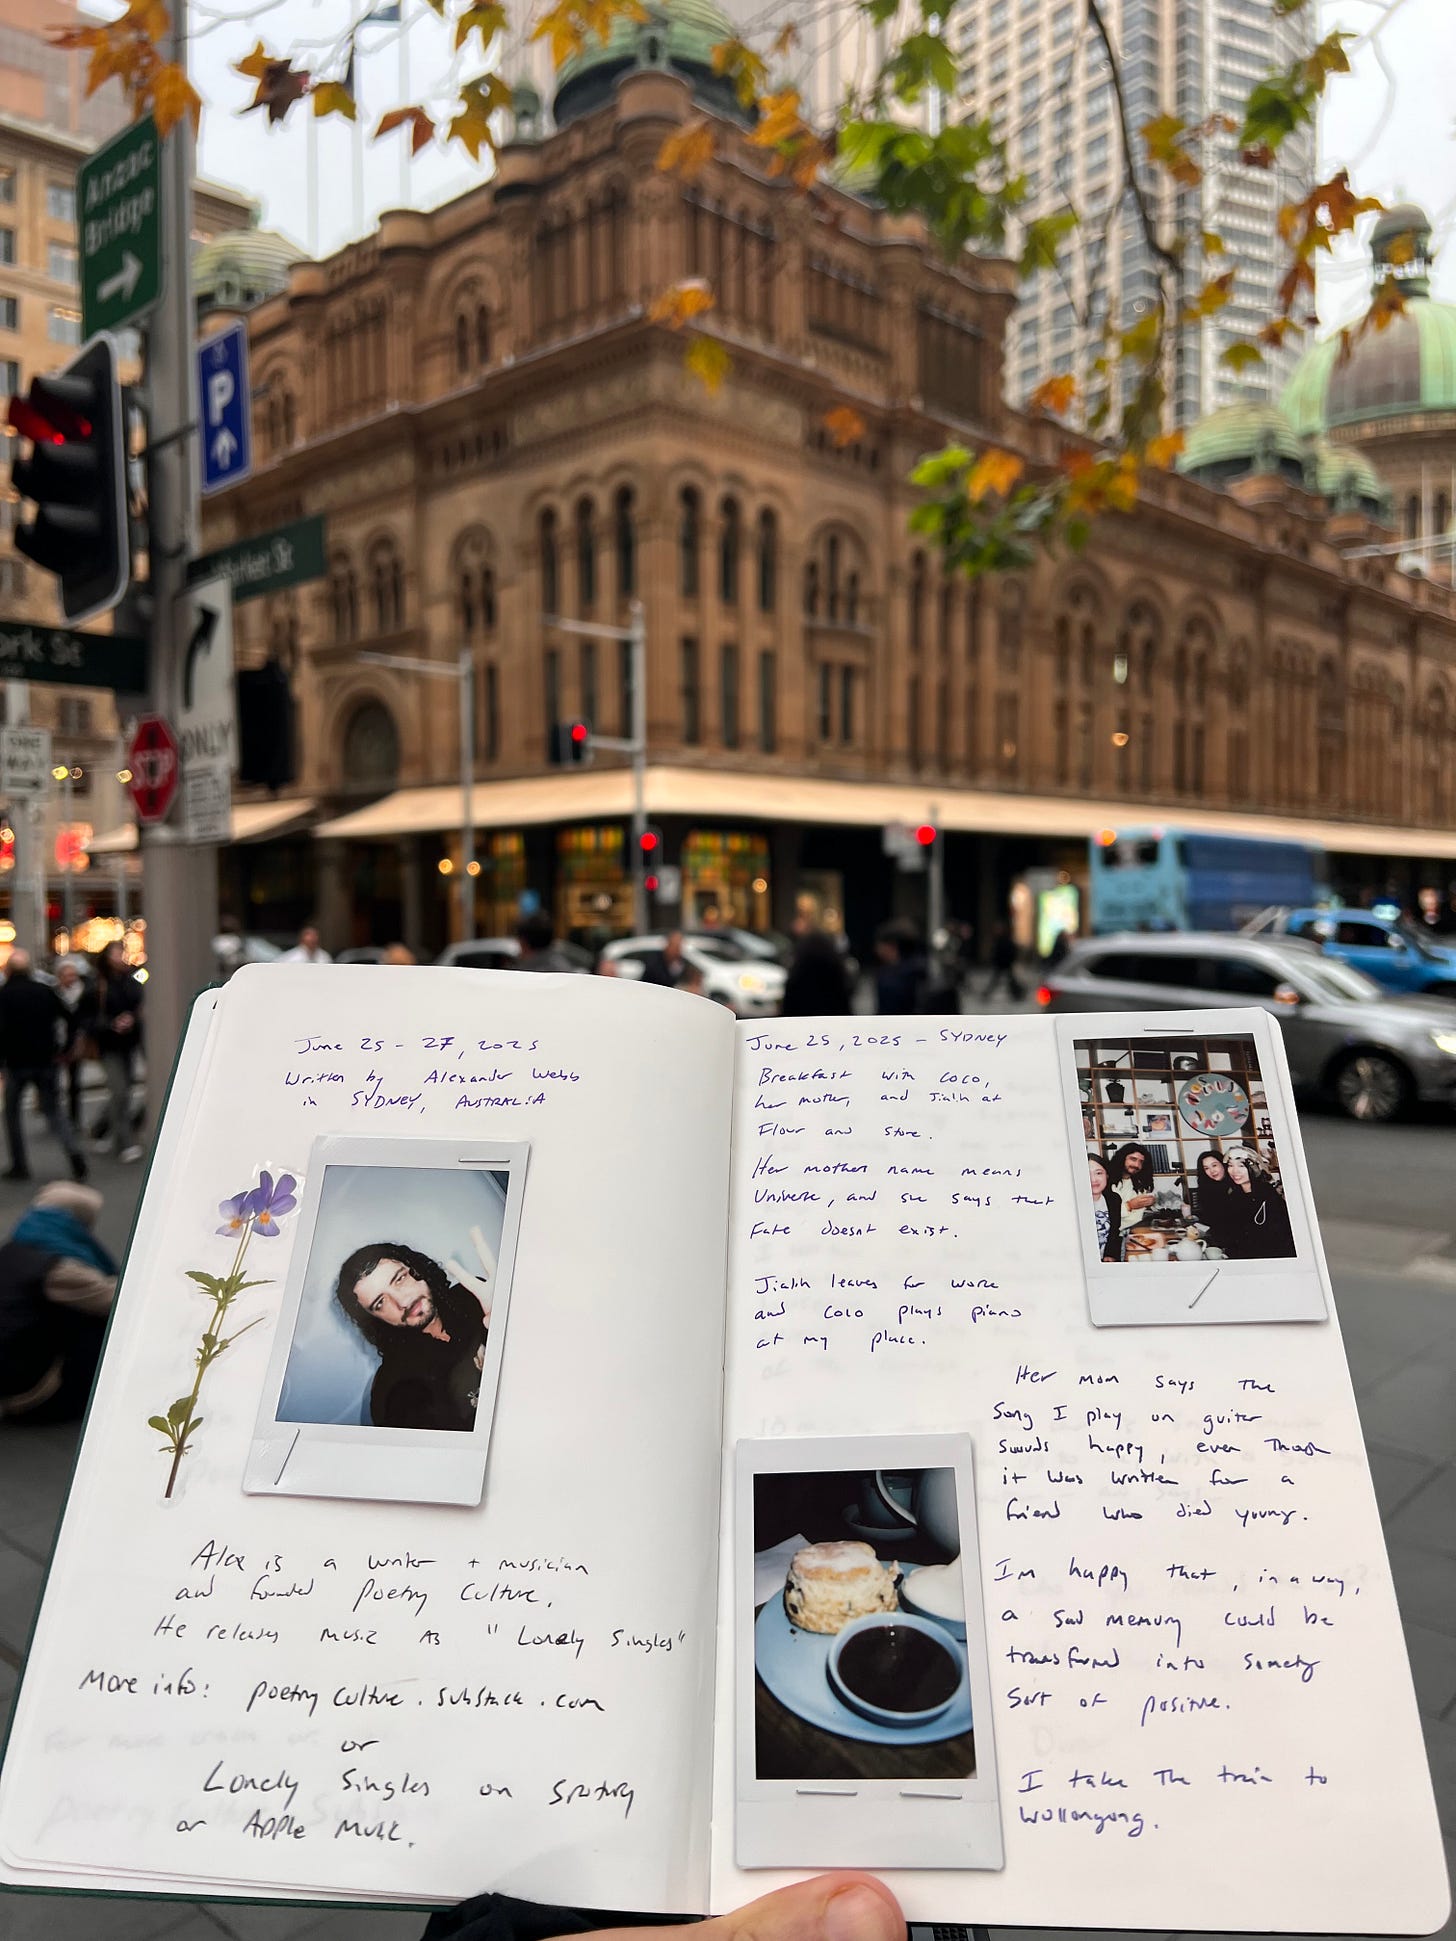 Anzac
Bridge
P
Market St
York St
ONLY
STOP
June 25 - 27, 2025
Written by Alexander Webb
in SYDNEY, AUSTRALIA
Alex is a writer + musician
and founded Poetry Culture.
He releases music as "Lonely Singles"
More info: poetryculture.substack.com
or
Lonely Singles on Spotify
or Apple Music.
June 25, 2025 - SYDNEY
Breakfast with Coco,
her mother, and Jialin at
Flour and Stone.
Her mothers name means
Universe, and she says that
Fate doesnt exist.
Jialin leaves for work
and Coco plays piano
at my place.
Her mom says the
song I play on guitar
sounds happy, even though
it was written for a
friend who died young.
Im happy that, in a way,
a sad memory could be
transformed into somethg
sort of positive.
I take the train to
Wollongong.